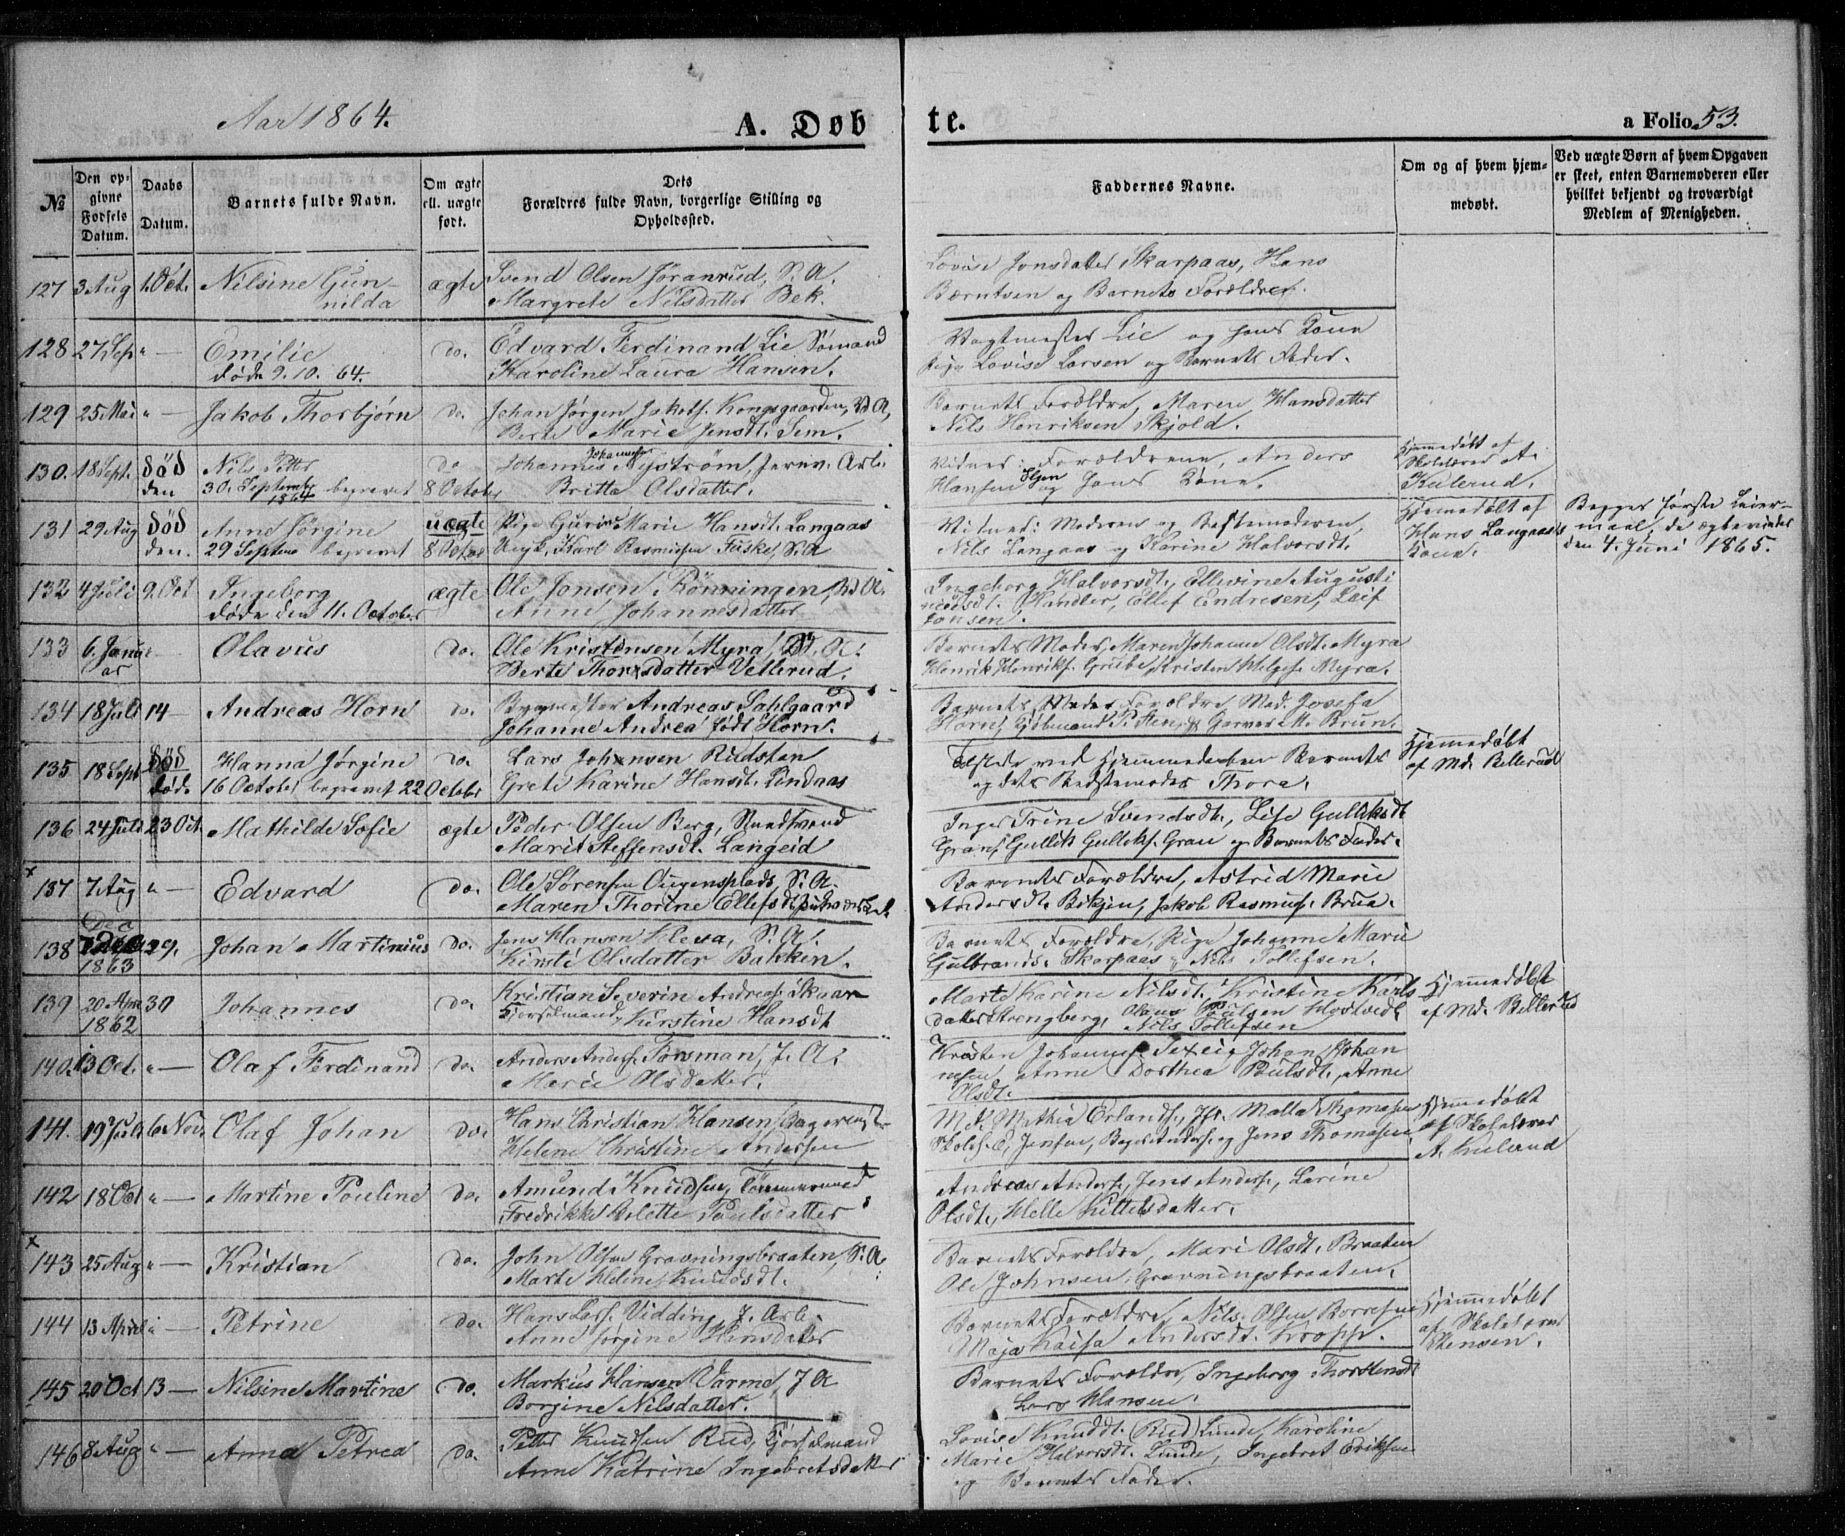 Aar 1864.
A. Døbte.
a Folio 53.
№
Den opgivne Fødsels Datum.
Daabs Datum.
Barnets fulde Navn.
Om ægte ell. uægte født.
Dets Forældres fulde Navn, borgerlige Stilling og Opholdssted.
Faddernes Navne.
Om og af hvem hjemmedøbt.
Ved uægte Børn af hvem Opgaven er skeet, enten Barnemoderen eller hvilket bekjendt og troværdigt Medlem af Menigheden.
127 3 Aug 1. Oct. Nilsine Gunnilda ægte Svend Olsen Jøranrud, S. A.
Margrete Nilsdatter Bek.
Lovise Jonsdatter Skarpaas, Hans
Bærntsen og Barnets Forældre.
128 27 Sep " — Emilie do. Edvard Ferdinand Lie Sømand
døde 9. 10. 64. Karoline Laura Hansen.
Vagtmester Lie og hans Kone
Pige Lovise Larsen og Barnets Fader.
129 25 Mai " — Jakob Thorbjørn do. Johan Jørgen Jakobs. Kongsgaarden,
Berte Marie Jensdt. Sem.
Barnets Forældre, Maren Hansdatter
Nils Henriksen Skjold.
130. 18 Sept. død Nils Petter do Johannes Johannesen Nystrøm, Jernv. Arb.
den 30. September 1864 begravet 8 October Britta Olsdatter.
Vidner: Forældrene, Anders
Hansen og hans Kone.
Hjemmedøbt af
Skolelærer A.
Kulerud.
131 29 Aug død Anne Jørgine uægte Pige Guri Marie Hansdt. Langaas
den. 29 Septemb begravet 8 October Ungk. Karl Rasmusen Fiske, S. A
Vidner: Moderen og Bestemoderen,
Nils Langaas og Karine Halvorsdt.
Hjemmedøbt af
Hans Langaas's
Kone.
Begges første Leiermaal, de ægtevidet
den 4. Juni 1865.
132 4 Juli 9. Oct Ingeborg ægte Ole Jonsen Rønningen,
døde den 11. October Anne Johannesdatter
Ingeborg Halvorsdt., Ellevine Augusti
Handler, Ellef Endresen, Leif
Jonsen.
133 6. Januar Olavus do. Ole Kristensen Myra,
Berte Thorsdatter Vellerud.
Barnets Moder, Maren Johanne Olsdt. Myra
Henrik Henriks. Grube, Kristen Helges. Myra.
134 18 Juli 14 — Andreas Horn do. Andreas Dahlgaard
Johanne Andrea født Horn.
Barnets Moders Forældre, Mad. Josefa
Horn, Kjøbmand P. Steen, Garver M. Bruun.
135 18 Sept død Hanna Jørgine do. Lars Johnsen Rudsten
døde 16 October begravet 22 October Grete Karine Hansdt. Lindaas
Tilstede ved Hjemmedaaben Barnets
og dets Bedstemoder Thora.
Hjemmedøbt
af Md. Bellerud
136 24 Juli 23 Oct. Mathilde Sofie ægte Peder Olsen Berg, Sandsvend
Marit Steffensdt. Langeid
Inger Trine Svendsdt., Lise Gulliksdt
Gran, Gullik Gulliks. Gran og Barnets Fader.
137 7 Aug " — Edvard do. Ole Sørensen Augensplads, S. A.
Maren Thorine Ellefsdt.
Barnets Forældre, Astrid Marie
Andersdt. Bøkjen, Jakob Rasmus. Brua.
138 Dec 1863 29. Johan Martinius do. Jens Hansen Kleva, S. A.
Kirsti Olsdatter Bakken.
Barnets Forældre, Pige Johanne Marie
Gulbrands. Skarpaas, Nils Tollefsen.
139 20 1862 30 Johannes do. Kristian Severin Andreas. Skaar
Kjørselmand, Kirstine Hansdt
Marte Karine Nilsdt. Kristine Karls
datter Strengberg, Olaus Poulsen Hostvedt
Nils Tollefsen
Hjemmedøbt
af Md. Bellerud
140. 13 Oct. " — Olaf Ferdinand do. Anders Anders. Forsman, J. A.
Marie Olsdatter.
Kristen Johannes. Johan Johan
nesen, Anne Dorthea Poulsdt., Anne
Olsdt.
141. 19 Juli 6. Nov. Olaf Johan do. Hans Christian Hansen,
Helene Christine Andersen
Md. Mathia Ørlands., Jfr. Malla Thomasen
Jensen, Bager Anders. og Jens Thomasen.
Hjemmedøbt
af Skolelærer
A. Kulerud
142 18 Oct " — Martine Pouline do. Amund Knudsen, Tømmermand
Fredrikke Arlette Poulsdatter
Andreas Anders., Jens Anders., Larine
Olsdt., Helle Kittelsdatter.
143 25 Aug " — Kristian do. John Olsen Gravningsbraaten, S. A
Marte Helene Knudsdt.
Barnets Forældre, Mari Olsdt. Braaten
Ole Johnsen Gravningsbraaten.
144 13 April " — Petrine do. Hans Lars. Vidding, J. Arb.
Anne Jørgine Hansdatter
Barnets Forældre, Nils Olsen Borresen
Maja Kaisa Andersdt. Kropp.
Hjemmedøbt
af Skolelærer
Stensen.
145 20 Oct 13 — Nilsine Martine do. Markus Hansen Varme, J A
Borgine Nilsdatter.
Barnets Forældre, Ingeborg Thorstensdt
Lars Hansen.
146 8 Aug " — Anna Petrea do. Petter Knudsen Rud, Kjørselmand
Anne Katrine Ingebretsdatter
Lovise Knudsdt. (Rud) Lunde, Karoline
Marie Halvorsdt. Lunde, Ingebret Eriksen
og Barnets Fader.